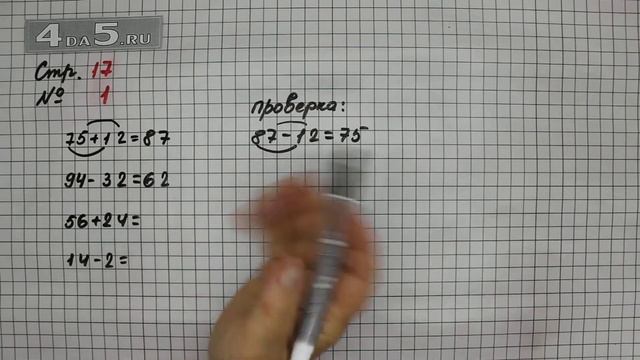 4DA5.RU
Стр. 17
№ 1
проверка:
75+12=87
87-12=75
94-32=62
56+24=
14-2=